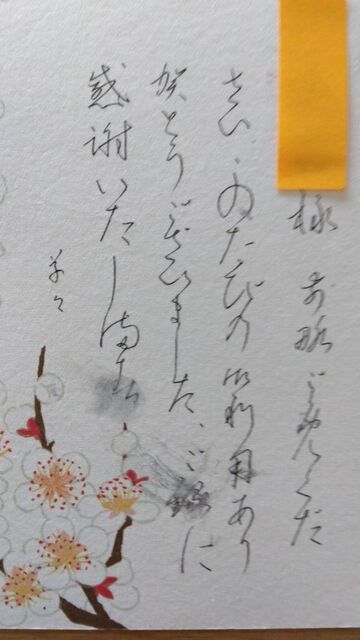 様 前略ごめんくだ
さい、このたびの御利用あり
がとうございました、ご縁に
感謝いたします
草々